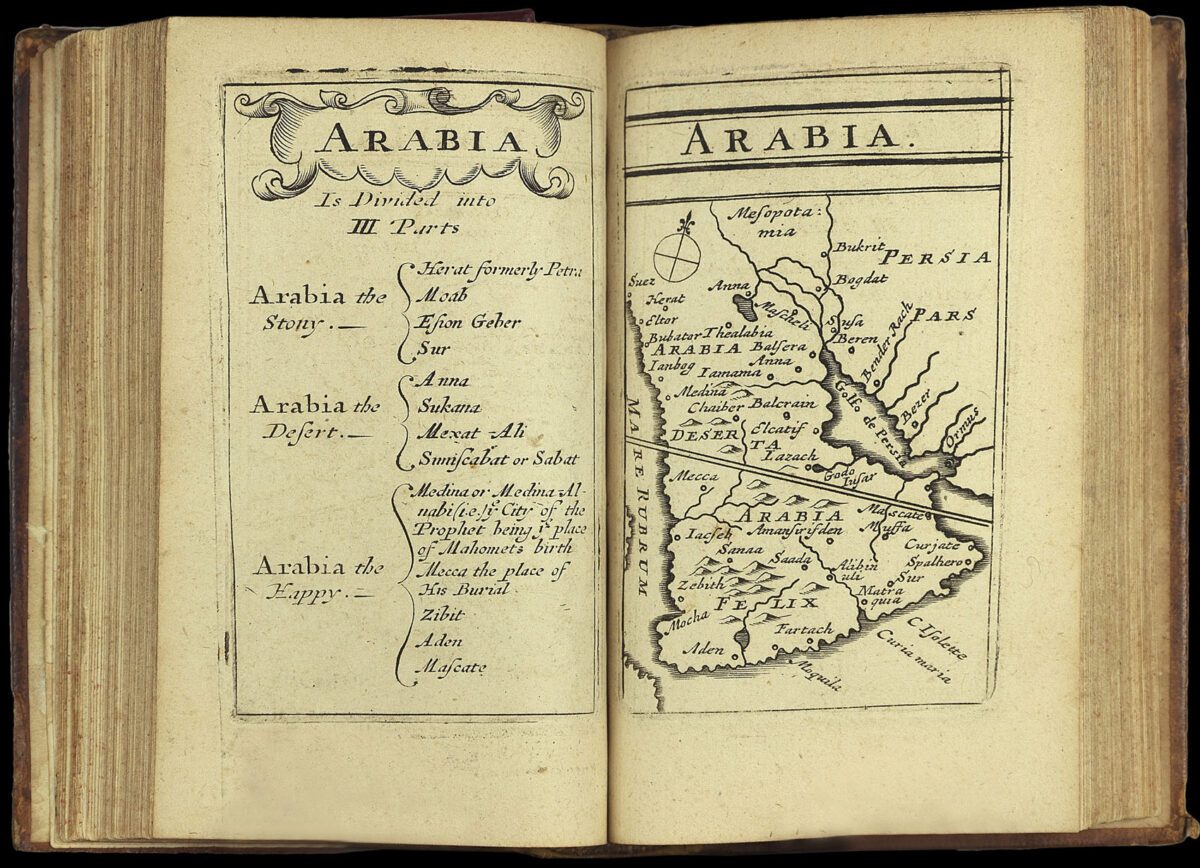 ARABIA
Is Divided into
III Parts
Arabia the
Stony.
Herat formerly Petra
Moab
Eſion Geber
Sur
Arabia the
Deſert.
Anna
Sukana
Mexat Ali
Sumiſcabat or Sabat
Arabia the
Happy.
Medina or Medina Al-
nabi (i.e.) yͤ City of the
Prophet being yͤ place
of Mahomets birth
Mecca the place of
His Burial
Zibit
Aden
Maſcate
ARABIA.
Meſopota:
mia
Bukrit
PERSIA
Suez
Anna
Bogdat
Herat
Eltor
Maſcheli
Suſa
PARS
Bubator Thealabia
Beren
Bender Rach
ARABIA Balſera
Ianbog
Anna
Iamama
Medina
Chaiber
Balcrain
Golfo de Perſia
Bezer
Ormus
MARE RUBRUM
DESER
TA
Elcatif
Lazach
Godo
Iuſar
Mecca
ARABIA
Maſcate
Iacſeh
Amanſirifden
Muffa
Curjate
Sanaa
Saada
Alibin
uli
Spalhero
Zebith
Sur
Matra
quia
FELIX
Mocha
Fartach
Aden
C Iſolette
Curia maria
Moquila